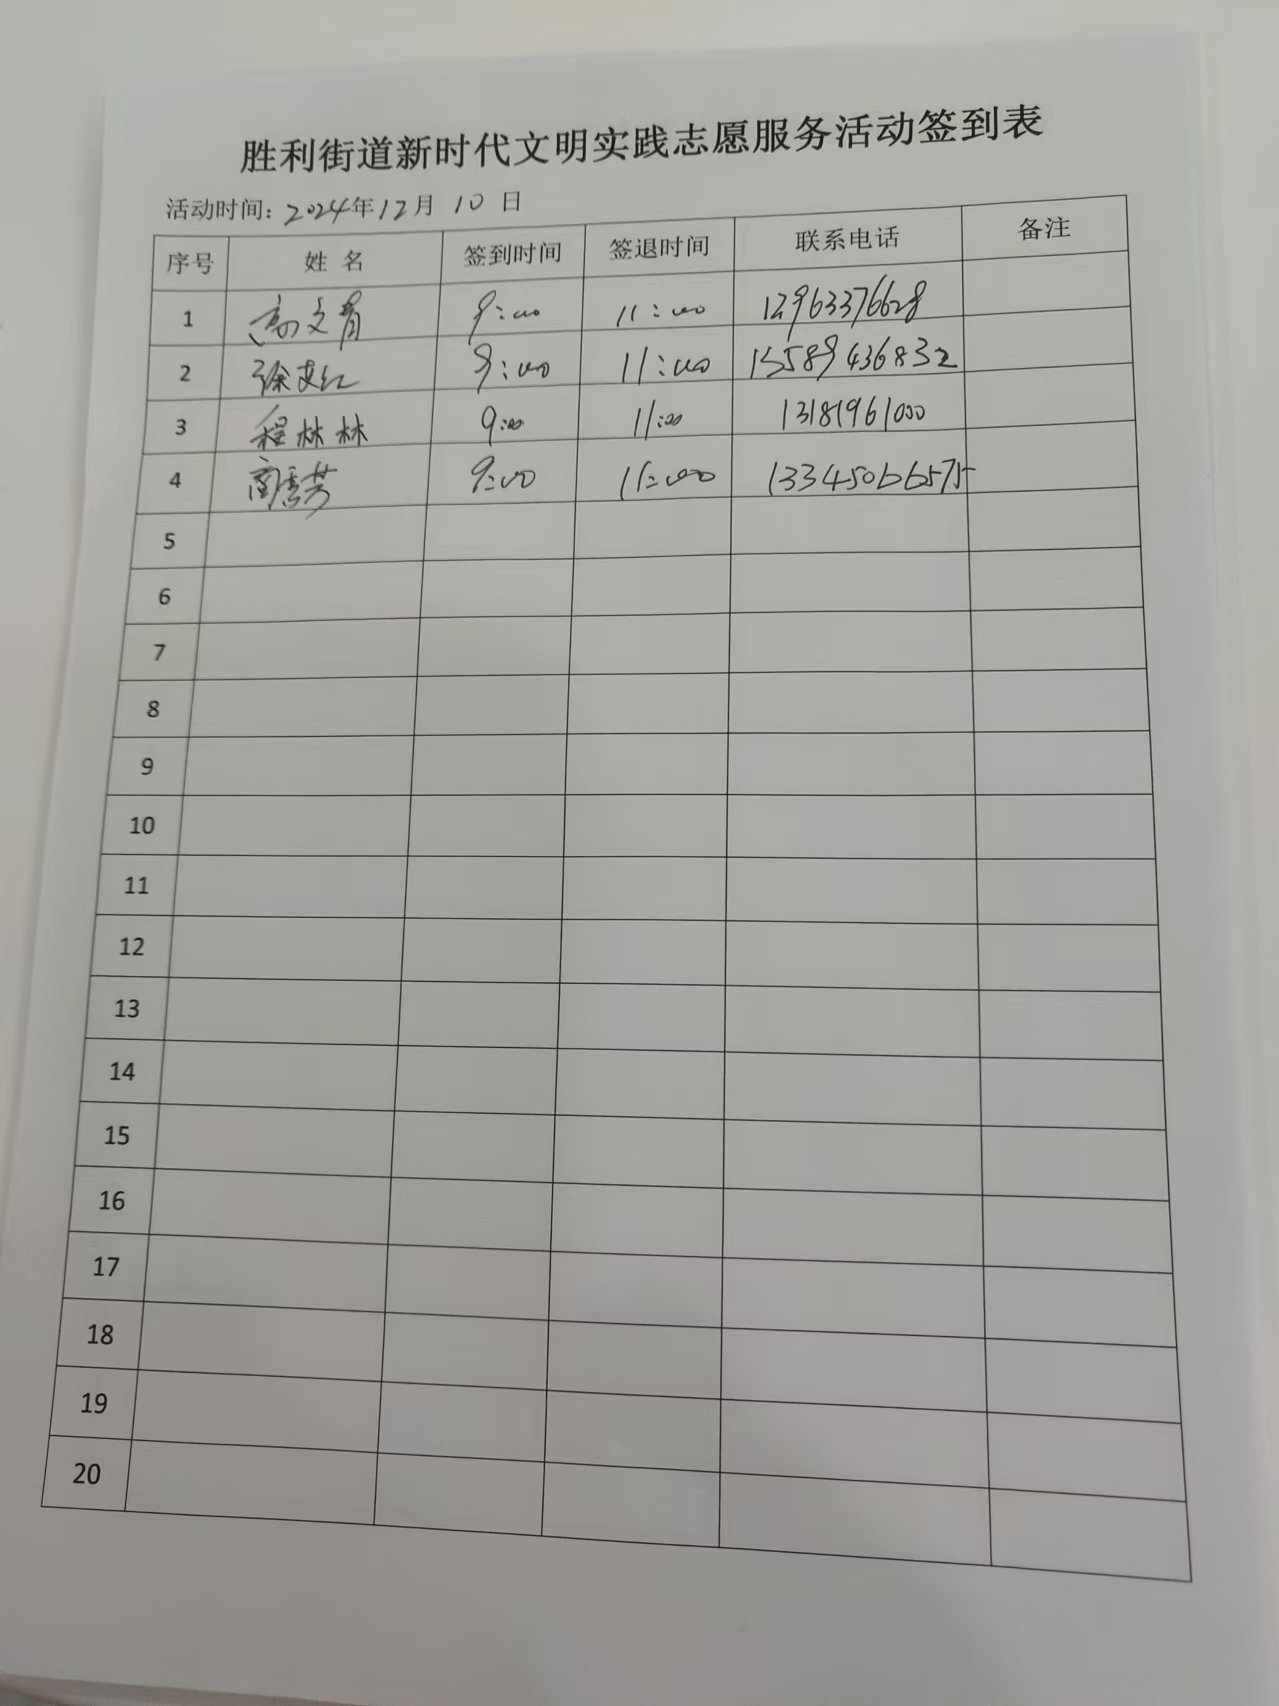 胜利街道新时代文明实践志愿服务活动签到表
活动时间: 2024年12月 10 日
序号 姓 名 签到时间 签退时间 联系电话 备注
1 高文青 9:00 11:00 12963376628
2 徐艾红 9:00 11:00 15589436832
3 程林林 9:00 11:00 13181961000
4 商雪芳 9:00 11:00 13345066575
5
6
7
8
9
10
11
12
13
14
15
16
17
18
19
20